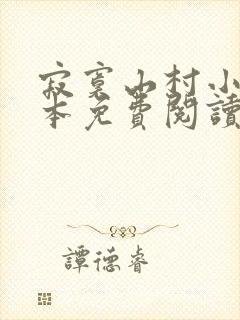 寂寞山村小
本免費閱讀
譚德睿